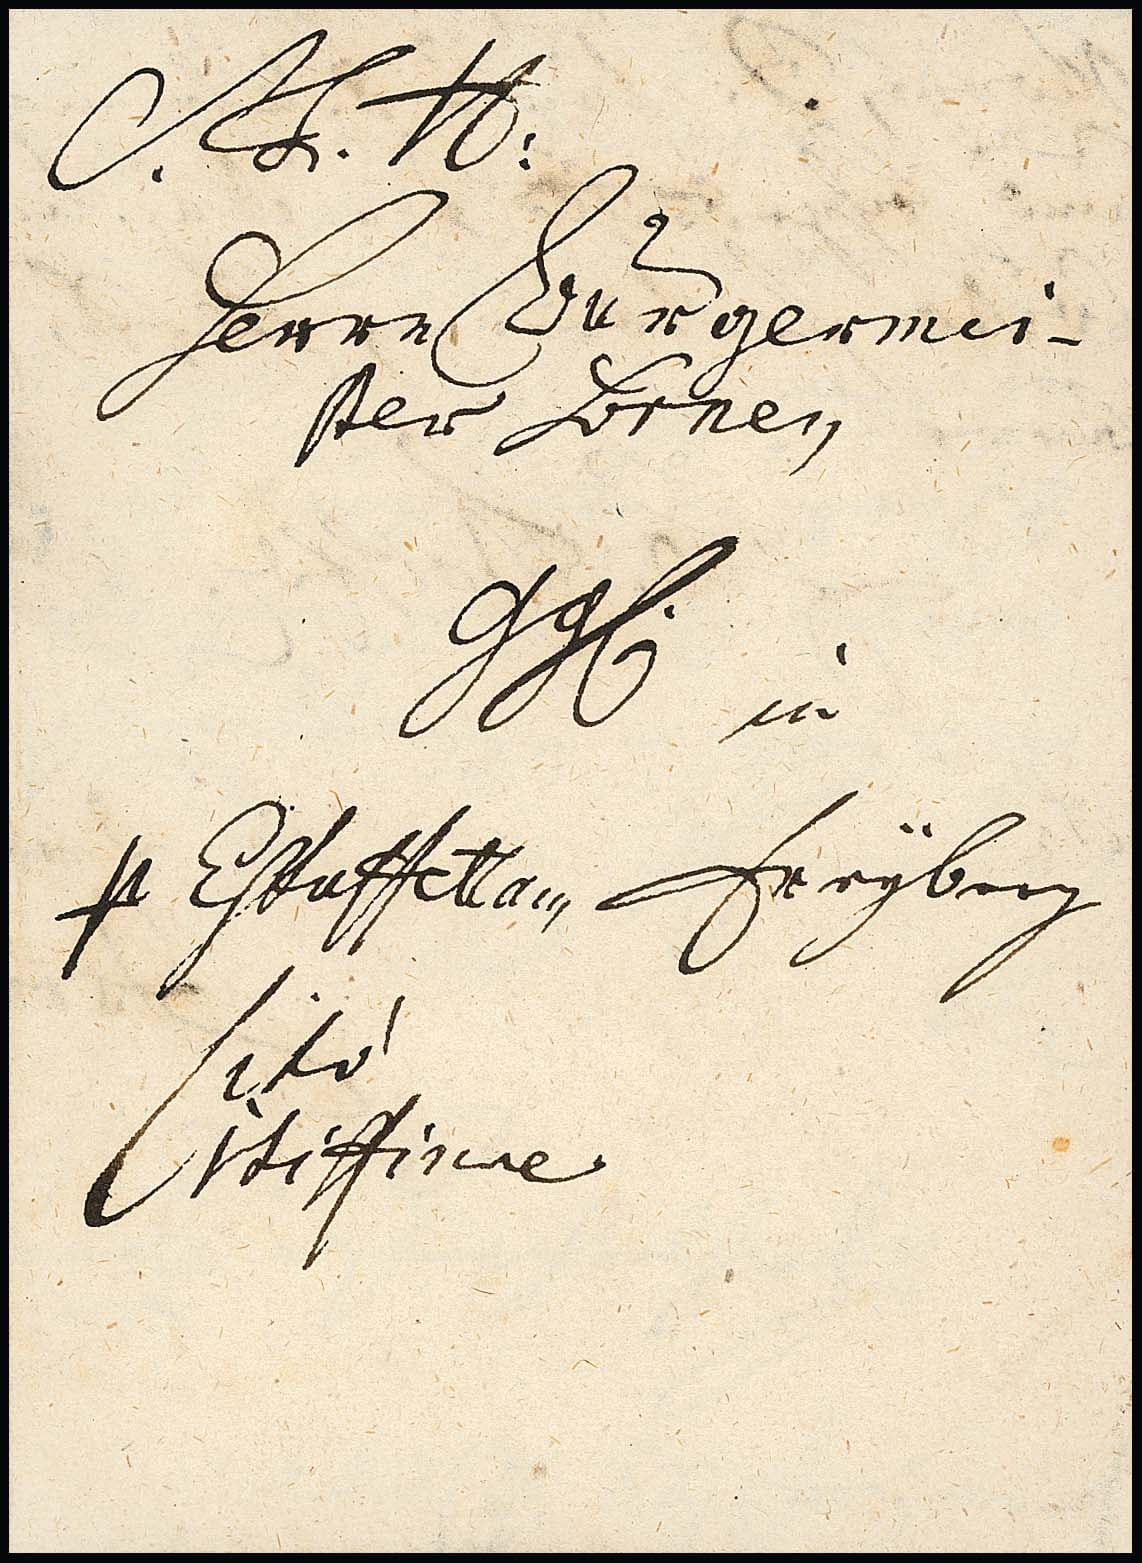 Herrn Bürgermei-
ster Hornen
in
p Estaffettam Freÿberg
Cito
Citissime